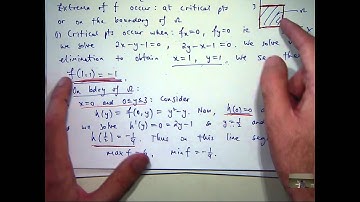 Extrema of f occur: at critical pts
or on the boundary of Ω
3
Ω
(i) Critical pts occur when: fx=0, fy=0 ie
we solve 2x-y-1=0, 2y-x-1=0. We solve
elimination to obtain x=1, y=1. We see
f(1,1)=-1.
On bdry of Ω:
x=0 and 0≤y≤3: Consider
h(y) = f(0,y) = y²-y. Now, h(0)=0
we solve h'(y)=0=2y-1 & y=1/2
h(1/2)=-1/4. Thus on this line seg
max f = 6, min f = -1/4